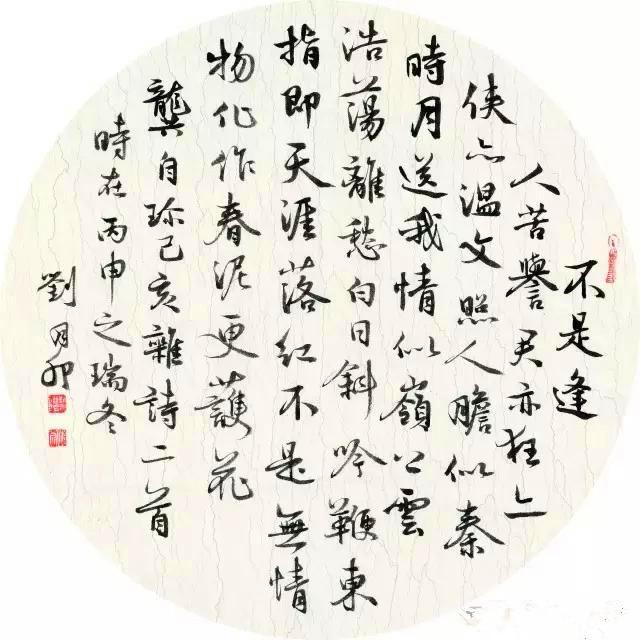 不是逢
人苦譽君亦狂亦
俠亦温文照人膽似秦
時月送我情似嶺上雲
浩蕩離愁白日斜吟鞭東
指即天涯落紅不是無情
物化作春泥更護花
龔自珍己亥雜詩二首
時在丙申之瑞冬
劉月卯